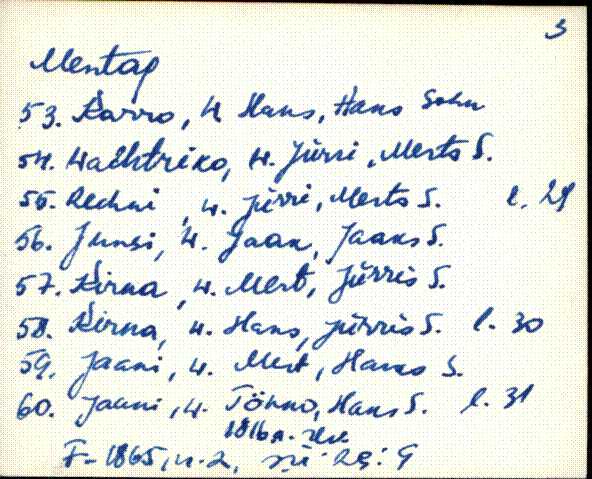 3
Mentap
53. Karro, W. Hans, Hans Sohn
54. Wachtriko, W. Jürri, Merts S.
55. Rechni, W. Jürri, Merts S. l. 29
56. Junsi, W. Jaan, Jaans S.
57. Kirna, W. Mert, Jürris S.
58. Kirna, W. Hans, Jürris S. l. 30
59. Jaani, W. Mert, Hans S.
60. Jaani, W. Tönno, Hans S. l. 31
1816 a.
F-1865, n. 2,